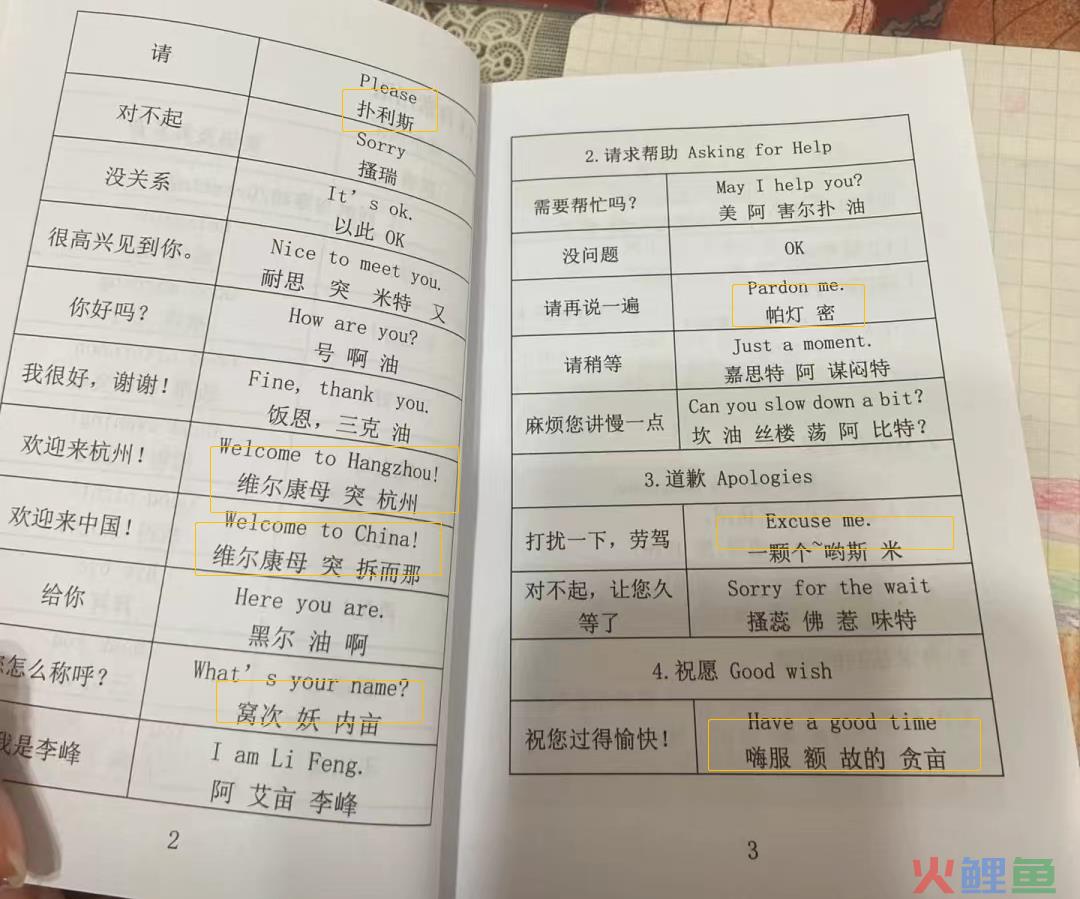 请
Please
扑利斯
对不起
Sorry
搔瑞
没关系
It's ok.
以此 OK
很高兴见到你。
Nice to meet you.
耐思 突 米特 又
你好吗?
How are you?
号 啊 油
我很好,谢谢!
Fine, thank you.
饭恩,三克 油
欢迎来杭州!
Welcome to Hangzhou!
维尔康母 突 杭州
欢迎来中国!
Welcome to China!
维尔康母 突 拆而那
给你
Here you are.
黑尔 油 啊
怎么称呼?
What's your name?
窝次 妖 内亩
是李峰
I am Li Feng.
阿 艾亩 李峰
2
2.请求帮助 Asking for Help
需要帮忙吗?
May I help you?
美 阿 害尔扑 油
没问题
OK
请再说一遍
Pardon me.
帕灯 密
请稍等
Just a moment.
嘉思特 阿 谋闷特
麻烦您讲慢一点
Can you slow down a bit?
坎 油 丝楼 荡 阿 比特?
3.道歉 Apologies
打扰一下,劳驾
Excuse me.
一颗个~哟斯 米
对不起,让您久
等了
Sorry for the wait
搔蕊 佛 惹 味特
4.祝愿 Good wish
祝您过得愉快!
Have a good time
嗨服 额 故的 贪亩
3
火鲤鱼